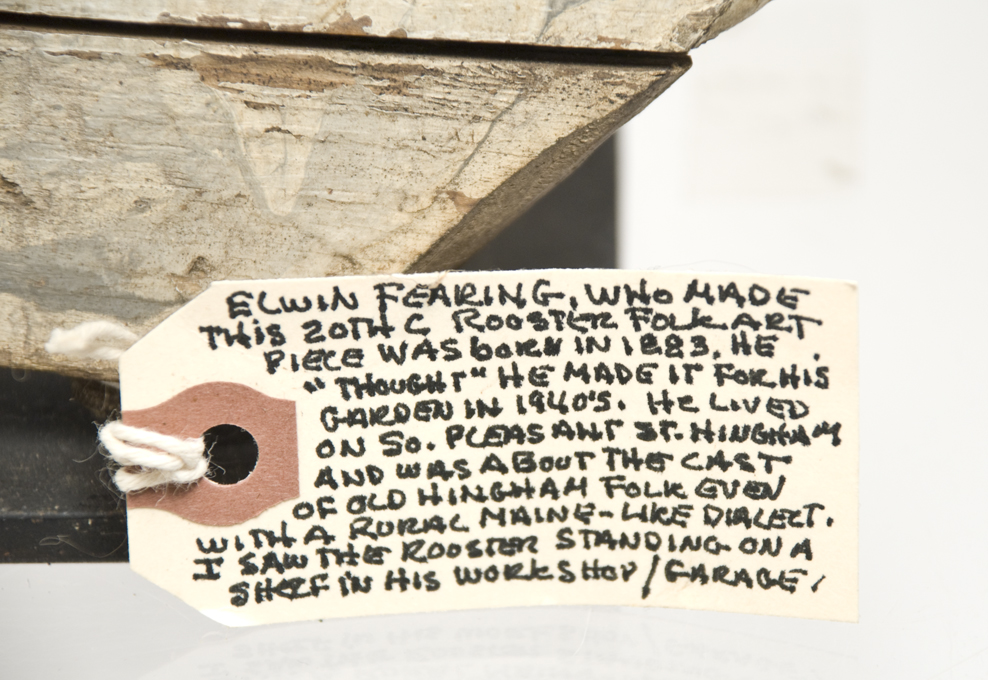 ELWIN FEARING, WHO MADE
THIS 20TH C ROOSTER FOLK ART
PIECE WAS born IN 1883. HE
"THOUGHT" HE MADE IT FOR HIS
GARDEN IN 1940'S. HE LIVED
ON SO. PLEASANT ST. HINGHAM
AND WAS ABOUT THE CAST
OF OLD HINGHAM FOLK EVEN
WITH A RURAL MAINE-LIKE DIALECT.
I SAW THE ROOSTER STANDING ON A
SHELF IN HIS WORKSHOP/GARAGE.